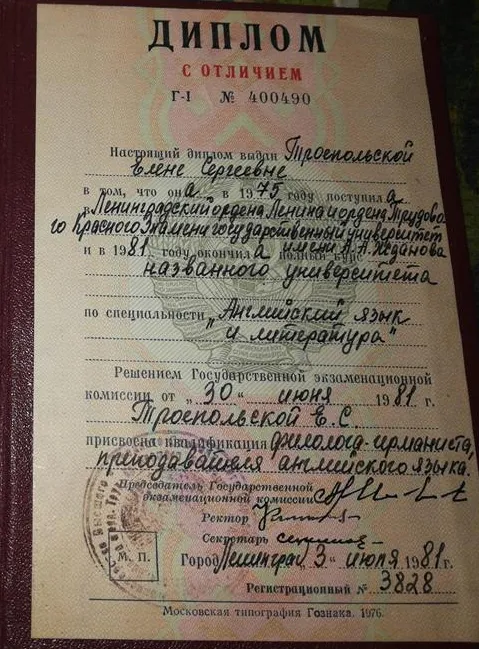 ДИПЛОМ
С ОТЛИЧИЕМ
Г-I № 400490
Настоящий диплом выдан Троепольской
Елене Сергеевне
в том, что она в 1975 году поступила
в Ленинградский ордена Ленина и ордена Трудово
го Красного Знамени государственный университет
имени А.А. Жданова
и в 1981 году окончила полный курс
названного университета
по специальности „Английский язык
и литература"
Решением Государственной экзаменационной
комиссии от „30" июня 1981 г.
Троепольской Е.С.
присвоена квалификация филолога-германиста,
преподавателя английского языка.
Председатель Государственной
экзаменационной комиссии
Ректор
Секретарь
М. П.
Город Ленинград 3" июля 1981 г.
Регистрационный № 3828
Московская типография Гознака. 1976.